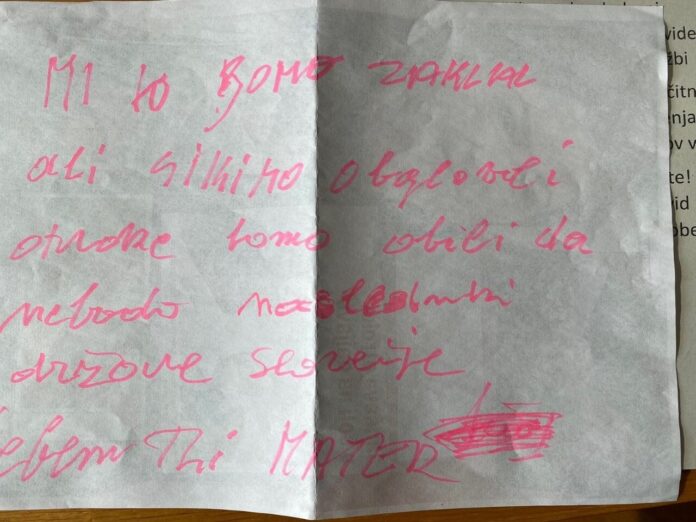 MI to BOMO ZAKLAL
ali sikiro obglovili
otroke bomo obili da
nebodo nasledniki
države Slovenije
ebem Thi MATER
vide
žbi
čitn
enja
ov v
te!
vid
obe